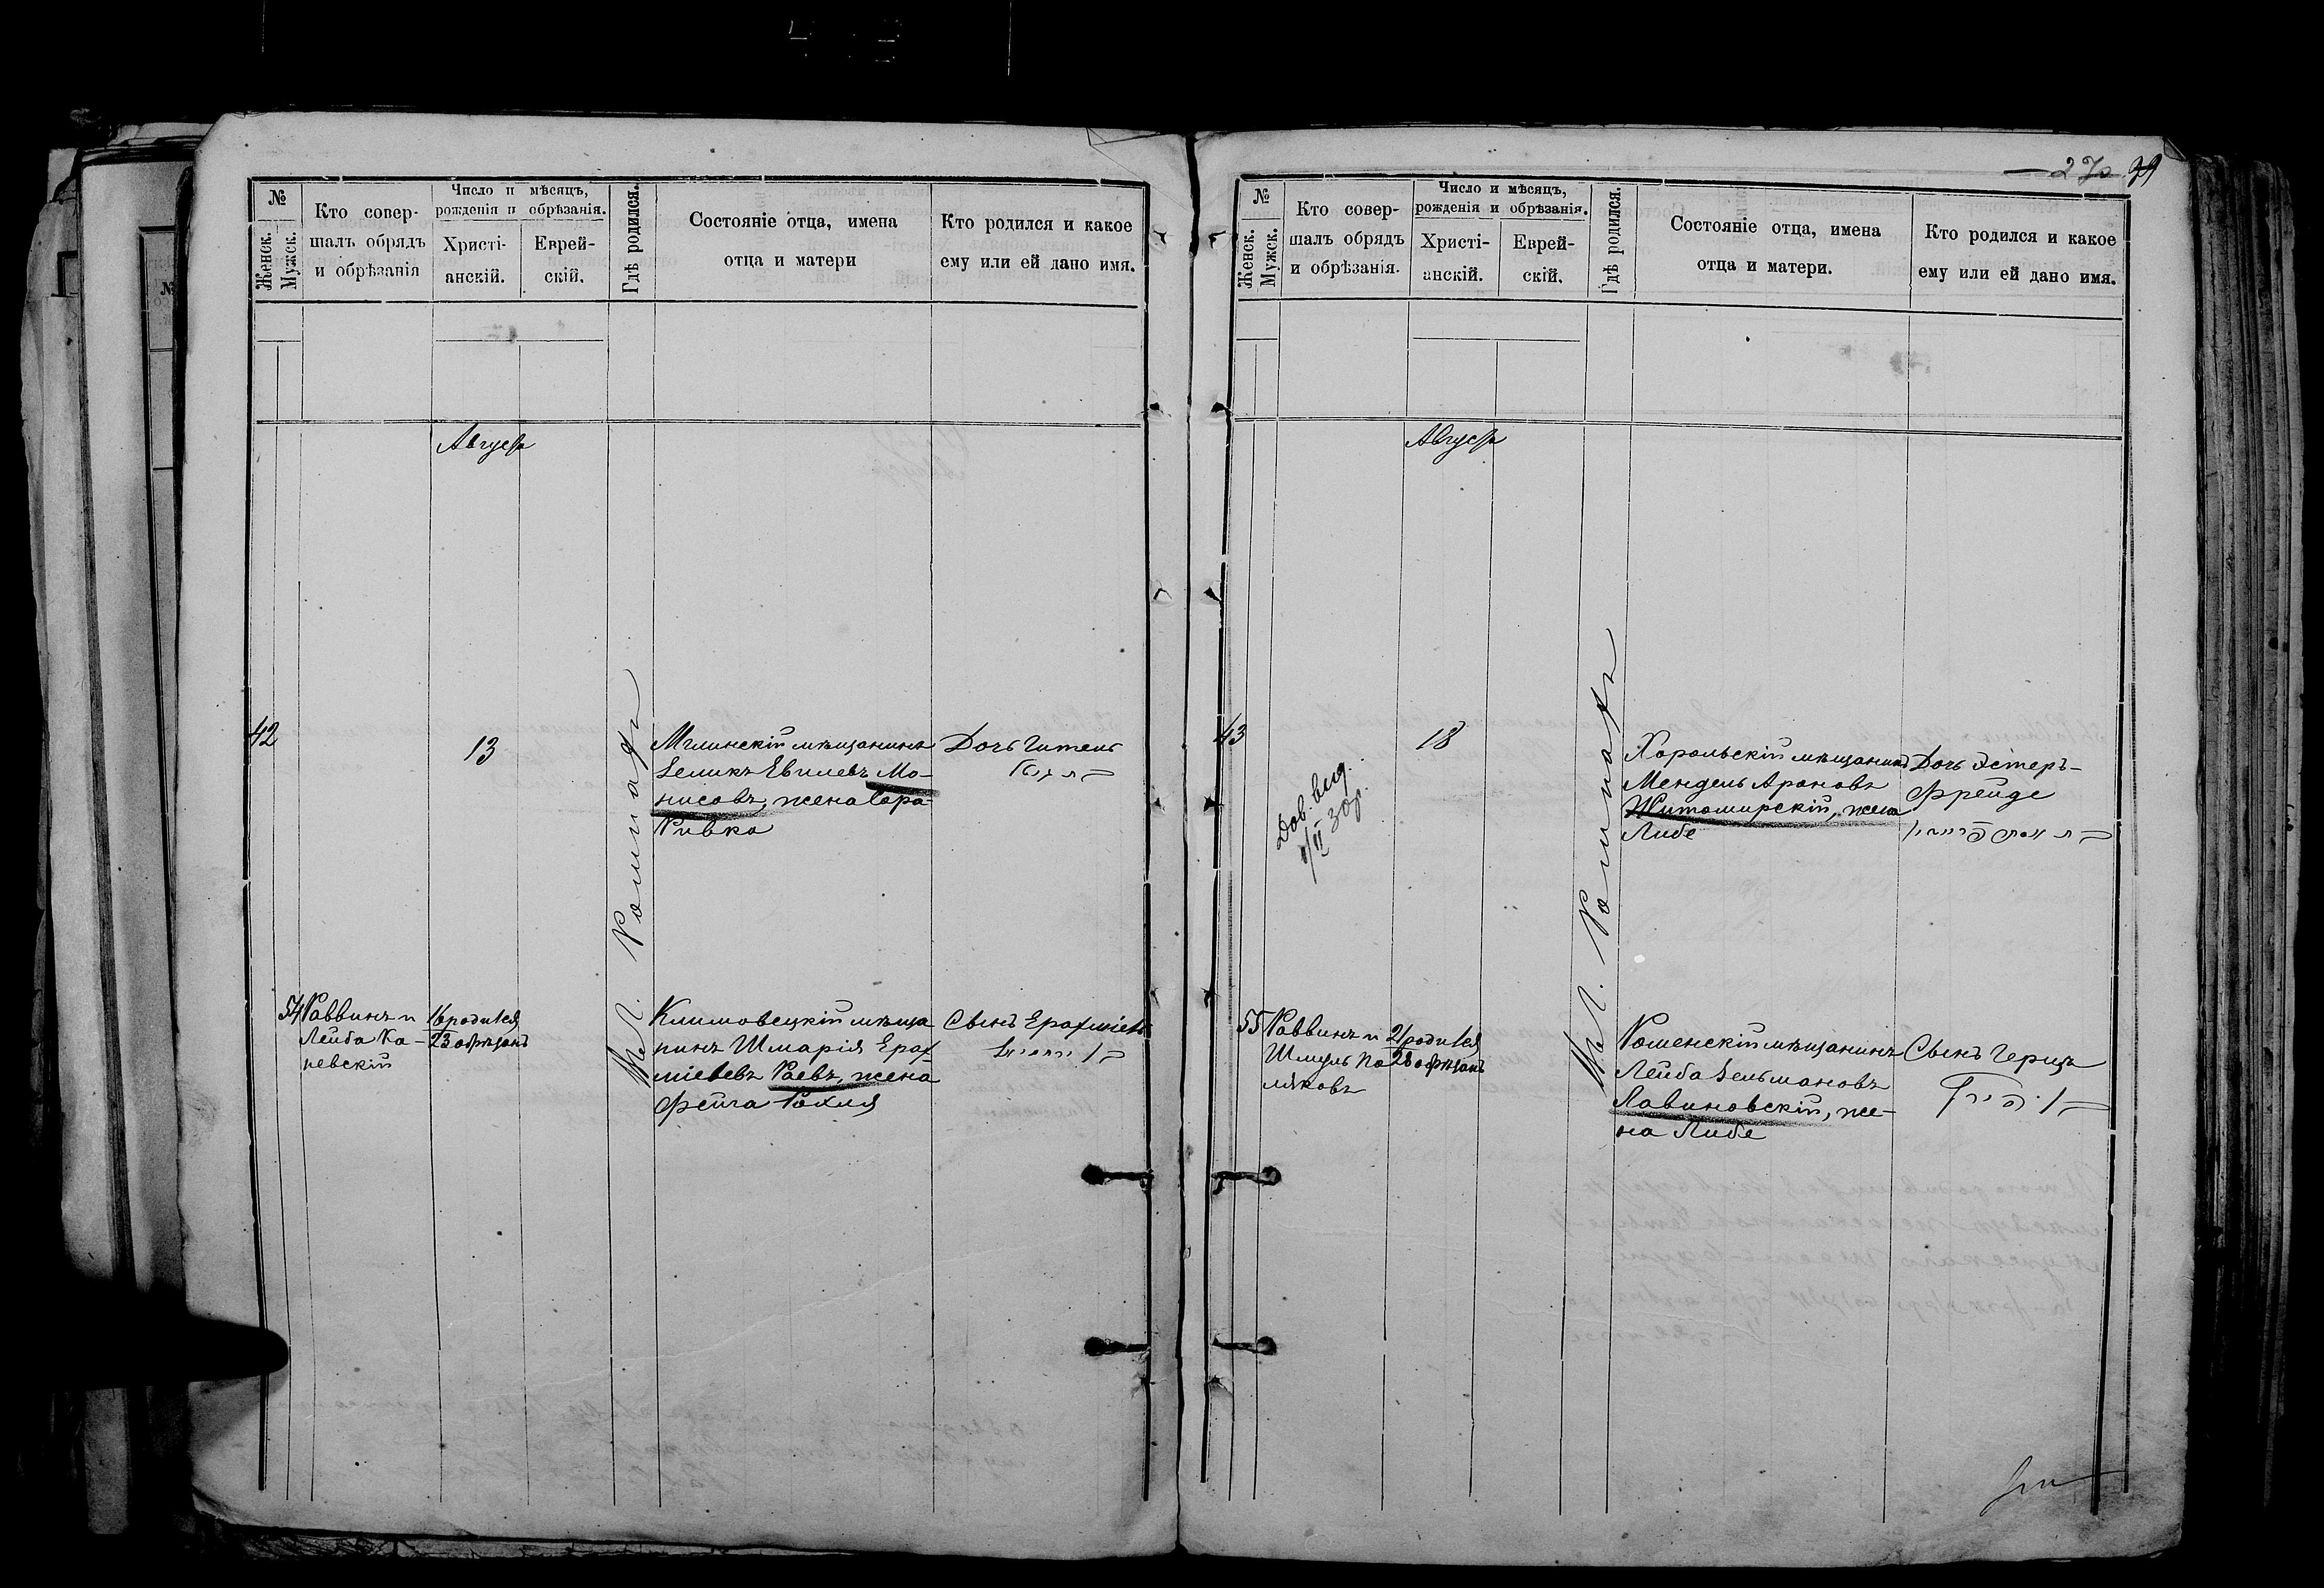 №
Женск.
Мужск.
Кто совер-
шалъ обрядъ
и обрѣзанія
Число и мѣсяцъ,
рожденія и обрѣзанія.
Христі-
анскій.
Еврей-
скій.
Гдѣ родился.
Состояніе отца, имена
отца и матери
Кто родился и какое
ему или ей дано имя.
Августа
42
13
Мглинскій мѣщанинъ
Зеликъ Евилевъ Мо-
нисовъ, жена Сара-
Ривка
Дочь Гитель
54
Раввинъ и
Лейба Ка-
невскій
16 родился
23 обрѣзанъ
Климовецкій мѣща
нинъ Шмарія Ерах
міевъ Раевъ, жена
Фейга Рохля
Сынъ Ерахміель
№
Женск.
Мужск.
Кто совер-
шалъ обрядъ
и обрѣзанія.
Число и мѣсяцъ,
рожденія и обрѣзанія.
Христі-
анскій.
Еврей-
скій.
Гдѣ родился.
Состояніе отца, имена
отца и матери.
Кто родился и какое
ему или ей дано имя.
Августа
43
18
Хорольскій мѣщанинъ
Мендель Ароновъ
Житомирскій, жена
Либе
Дочь Эстеръ-
Фрейде
55
Раввинъ и
Шмуль По
ляковъ
21 родился
28 обрѣзанъ
Роменскій мѣщанинъ
Лейба Зельмановъ
Лавиновскій, же-
на Либе
Сынъ Герцъ